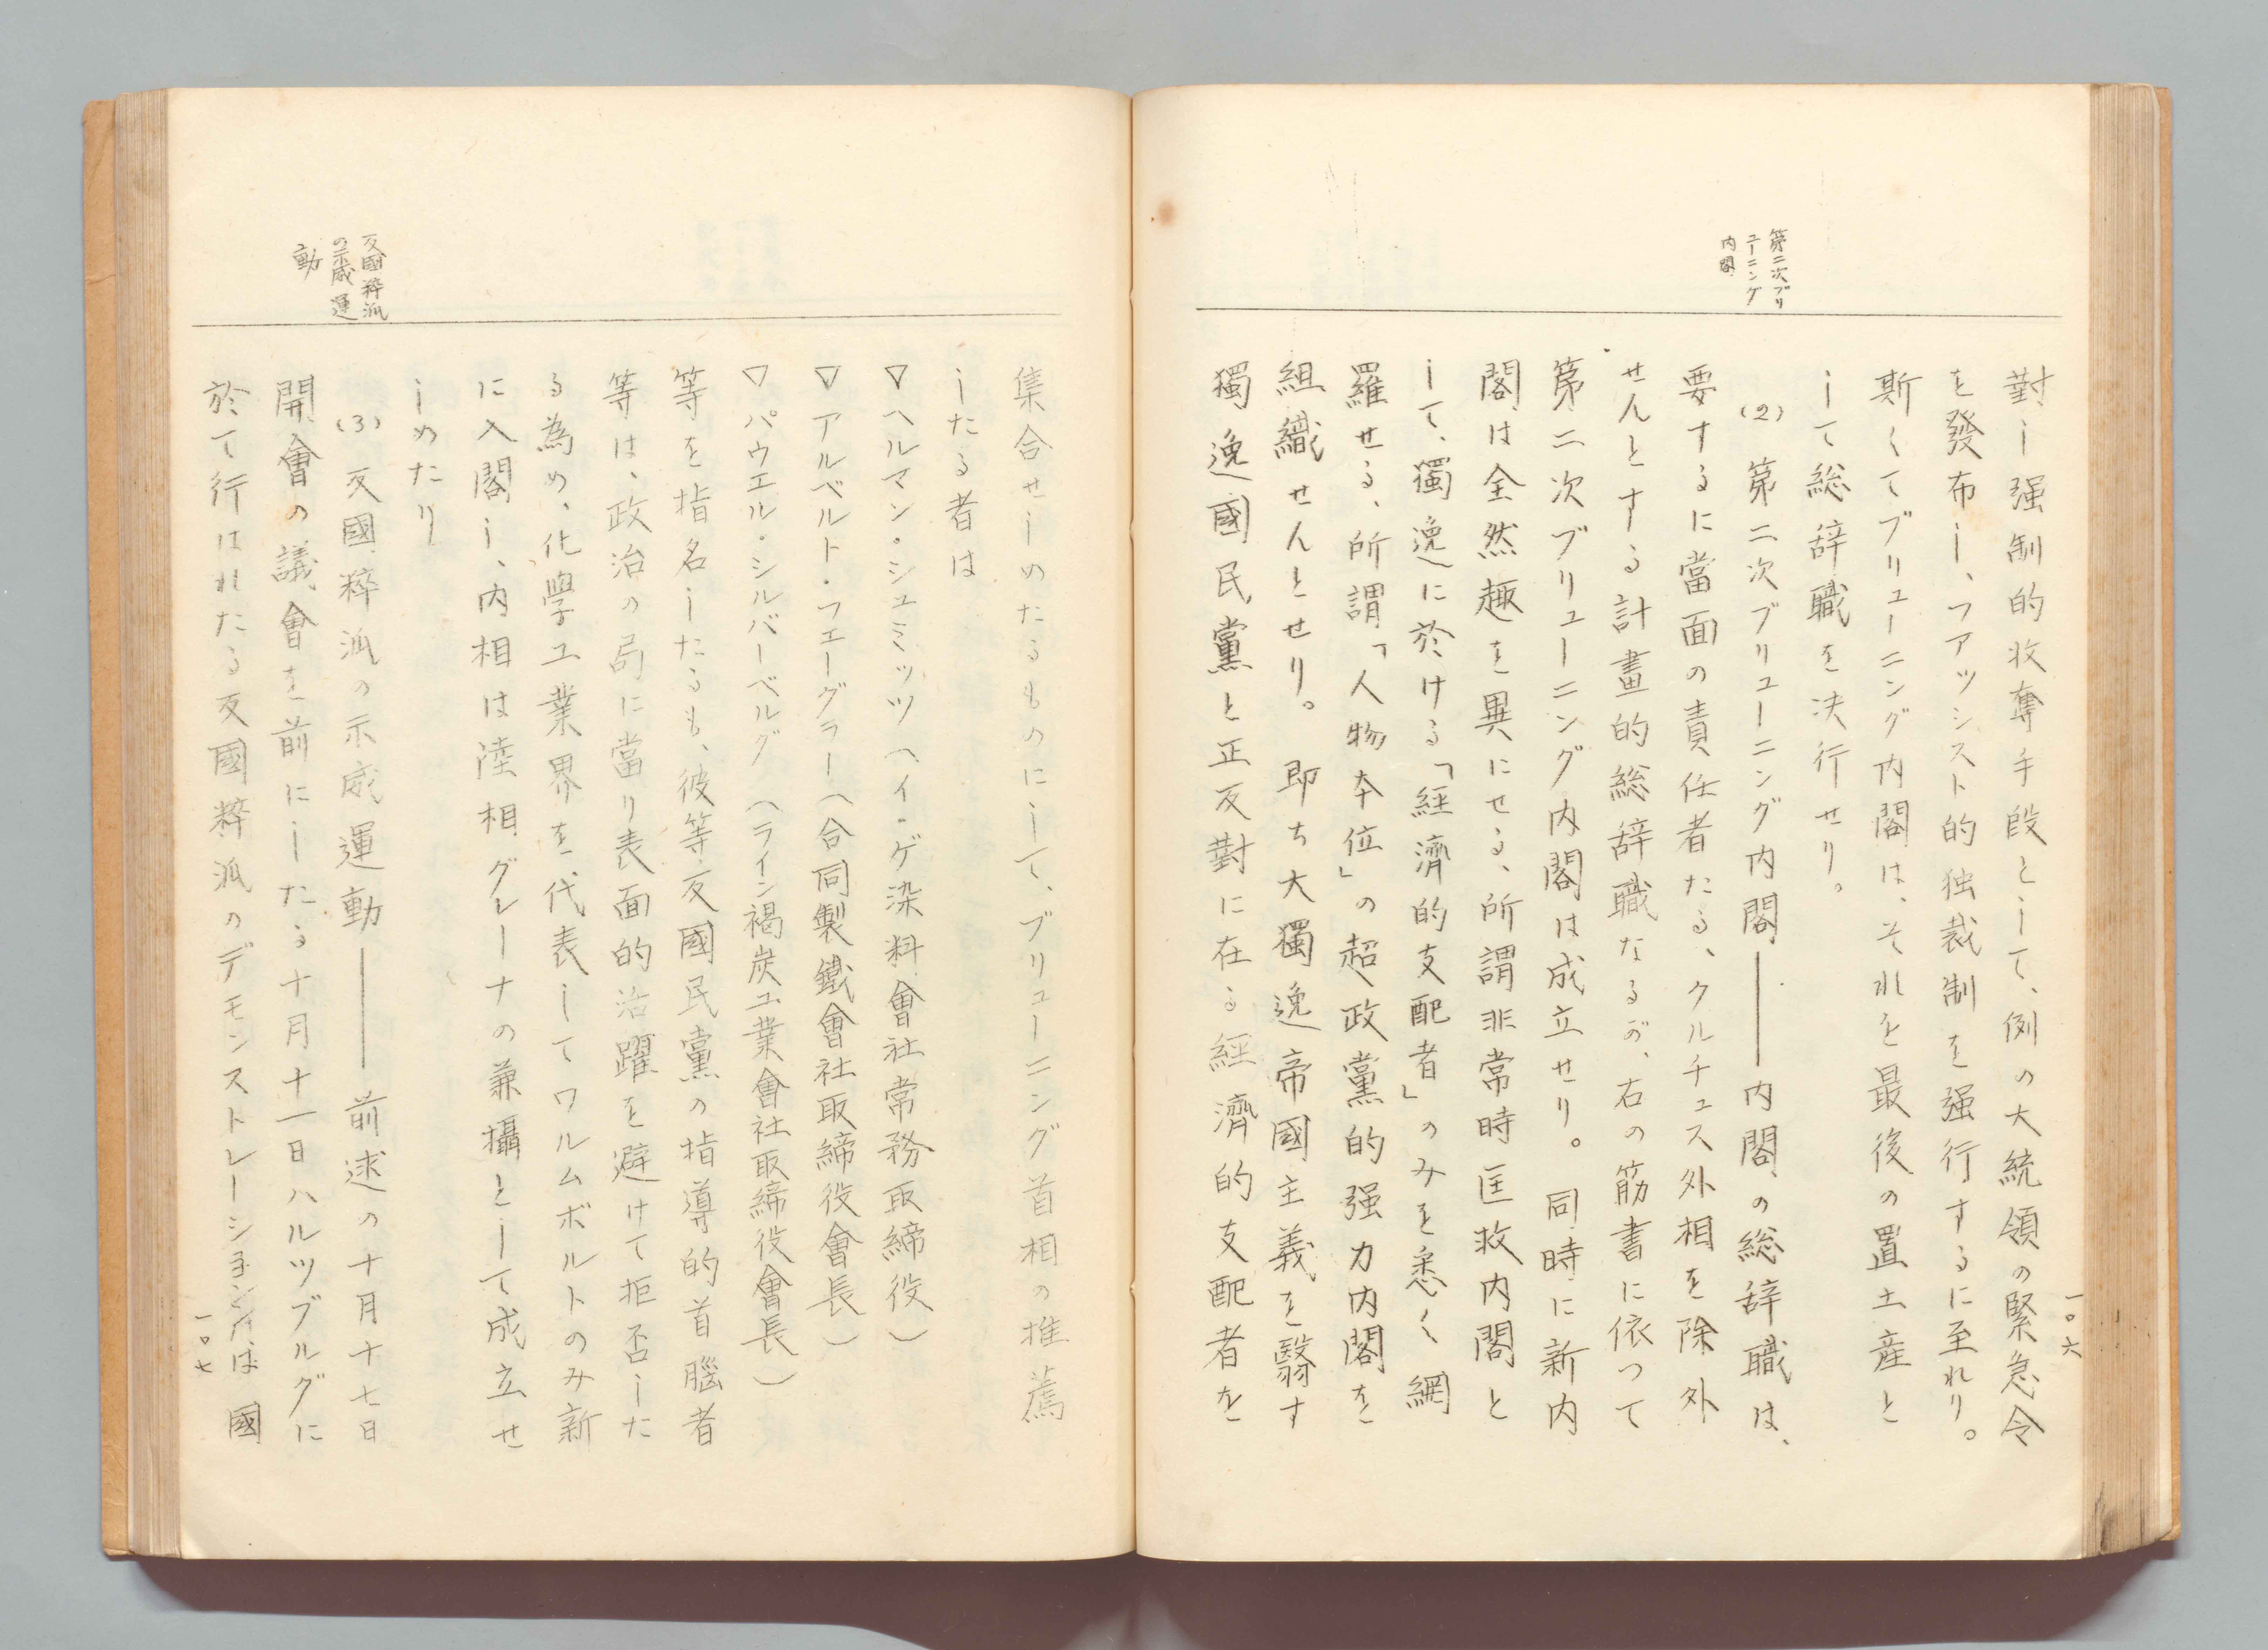 第二次ブリ
ユーニング
内閣
對し强制的收奪手段として、例の大統領の緊急令
を發布し、フアツシスト的独裁制を强行するに至れり。
斯くてブリユーニング内閣は、それを最後の置土産と
して総辞職を決行せり。
(2) 第二次ブリユーニング内閣――内閣の総辞職は、
要するに當面の責任者たる、クルチュス外相を除外
せんとする計畫的総辞職なるが、右の筋書に依つて
第二次ブリューニング内閣は成立せり。同時に新内
閣は全然趣を異にせる、所謂非常時匡救内閣と
して、獨逸に於ける「經濟的支配者」のみを悉く網
羅せる、所謂「人物本位」の超政黨的强力内閣を
組織せんとせり。即ち大獨逸帝國主義を翳す
獨逸國民黨と正反對に在る經濟的支配者を
一〇六
反國粹派
の示威運
動
集合せしめたるものにして、ブリューニング首相の推薦
したる者は
▽ヘルマン・シユミッツ(イ・ゲ染料會社常務取締役)
▽アルベルト・フエーグラー(合同製鐵會社取締役會長)
▽パウエル・シルバーベルグ(ライン褐炭工業會社取締役會長)
等を指名したるも、彼等反國民黨の指導的首腦者
等は、政治の局に當り表面的活躍を避けて拒否した
る為め、化學工業界を代表してワルムボルトのみ新
に入閣し、内相は陸相グレーナの兼攝として成立せ
しめたり
(3) 反國粹派の示威運動――前述の十月十七日
開會の議會を前にしたる十月十一日ハルツブルグに
於て行はれたる反國粹派のデモンストレーシヨンは國
一〇七